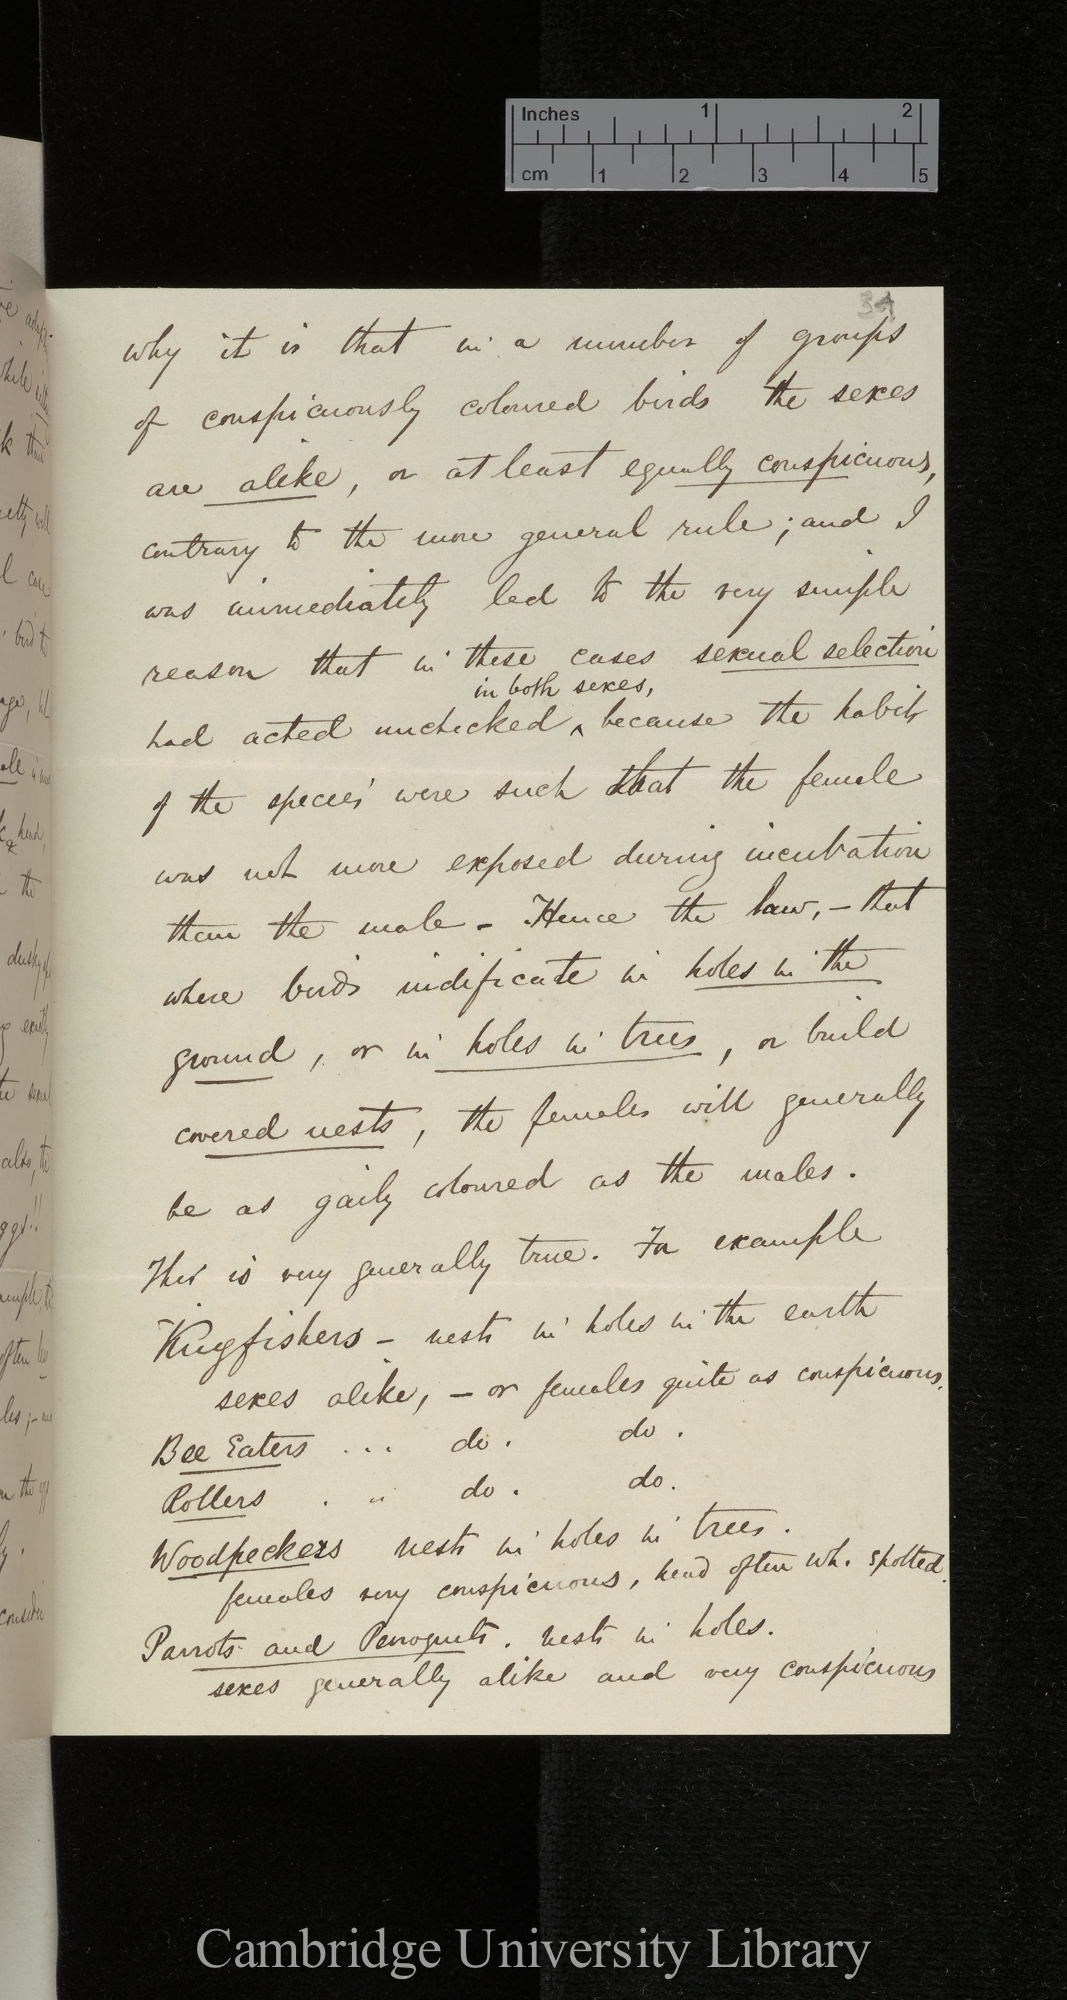 Inches 1 2
cm 1 2 3 4 5
34
why it is that in a number of groups
of conspicuously coloured birds the sexes
are alike, or at least equally conspicuous,
contrary to the more general rule; and I
was immediately led to the very simple
reason that in these cases sexual selection
in both sexes,
had acted unchecked ^ because the habits
of the species were such that the female
was not more exposed during incubation
than the male – Hence the law, – that
where birds nidificate in holes in the
ground, or in holes in trees, or build
covered nests, the females will generally
be as gaily coloured as the males.
This is very generally true. For example
Kingfishers – nests in holes in the earth
sexes alike, – or females quite as conspicuous.
Bee Eaters ... do. do.
Rollers . .. do. do.
Woodpeckers nests in holes in trees.
females very conspicuous, head often wh. spotted.
Parrots and Perroquets. nests in holes.
sexes generally alike and very conspicuous
Cambridge University Library